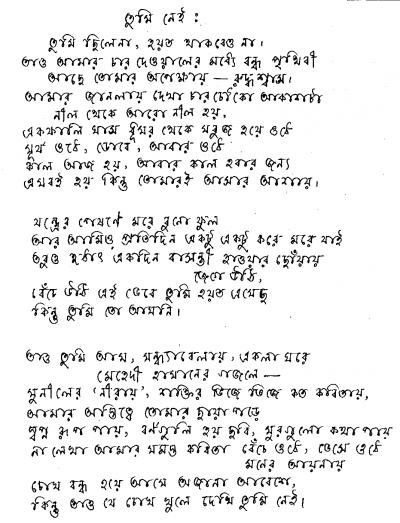 তুমি নেই :
তুমি ছিলেনা, হয়ত থাকবেও না।
তাও আমার চার দেওয়ালের মধ্যে বদ্ধ পৃথিবী
আছে তোমার অপেক্ষায় — রুদ্ধশ্বাস।
আমার জানলায় দেখা চারচৌকো আকাশটা
নীল থেকে আরো নীল হয়,
একফালি ঘাস ধূসর থেকে সবুজ হয়ে ওঠে
সূর্য ওঠে, ডোবে, আবার ওঠে
কাল আজ হয়, আবার কাল হবার জন্য
এসবই হয় কিন্তু তোমারই আসার আশায়।
যন্ত্রের পেষণে মরে বুনো ফুল
আর আমিও প্রতিদিন একটু একটু করে মরে যাই
তবুও হঠাৎ একদিন বাসন্তী হাওয়ার ছোঁয়ায়
জেগে উঠি,
বেঁচে উঠি এই ভেবে তুমি হয়ত এসেছ
কিন্তু তুমি তো আসনি।
তাও তুমি আস, সন্ধ্যাবেলায়, একলা ঘরে
মেহেদী হাসানের গজলে —
সুনীলের 'নীরায়', শক্তির ভিজে ভিজে কত কবিতায়,
আমার অস্তিত্বে তোমার ছায়া পড়ে
স্বপ্ন রূপ পায়, বর্ণগুলি হয় ছবি, সুরগুলো কথা পায়
না লেখা আমার সমস্ত কবিতা বেঁচে ওঠে, ভেসে ওঠে
মনের আয়নায়
চোখ বন্ধ হয়ে আসে অজানা আবেশে,
কিন্তু তাও যে চোখ খুলে দেখি তুমি নেই।